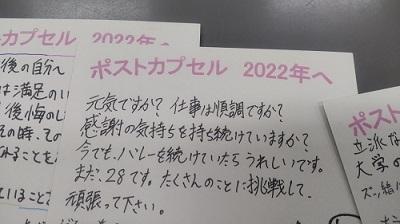 カプセル 2022年へ
後の自分へ
は満足のい
後悔のし
えの時、その
れることを
ていること
ポストカプセル 2022年へ
元気ですか？仕事は順調ですか？
感謝の気持ちを持ち続けていますか？
今でも、バレーを続けていたらうれしいです。
まだ、28です。たくさんのことに挑戦して、
頑張って下さい。
ポスト
立派な
大学の
ズッ緒に